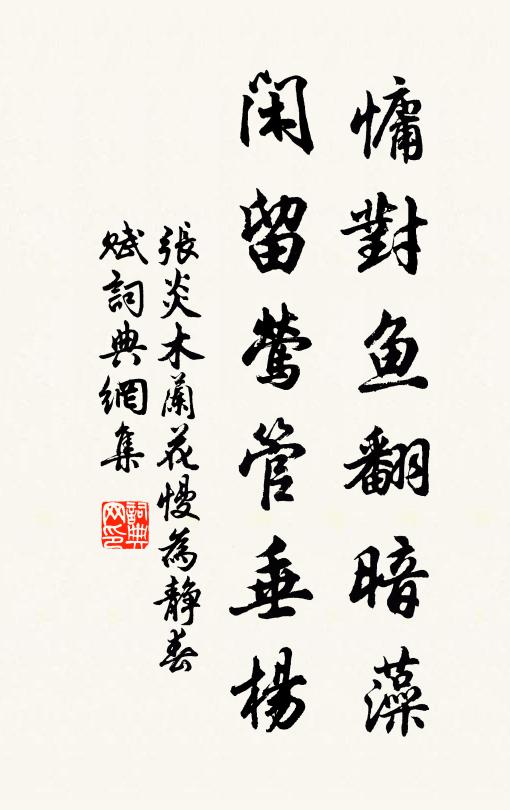 慵對鱼翻暗藻
闲留鶯管垂楊
張炎木蘭花慢為静春
赋詞典網集
詞典网印